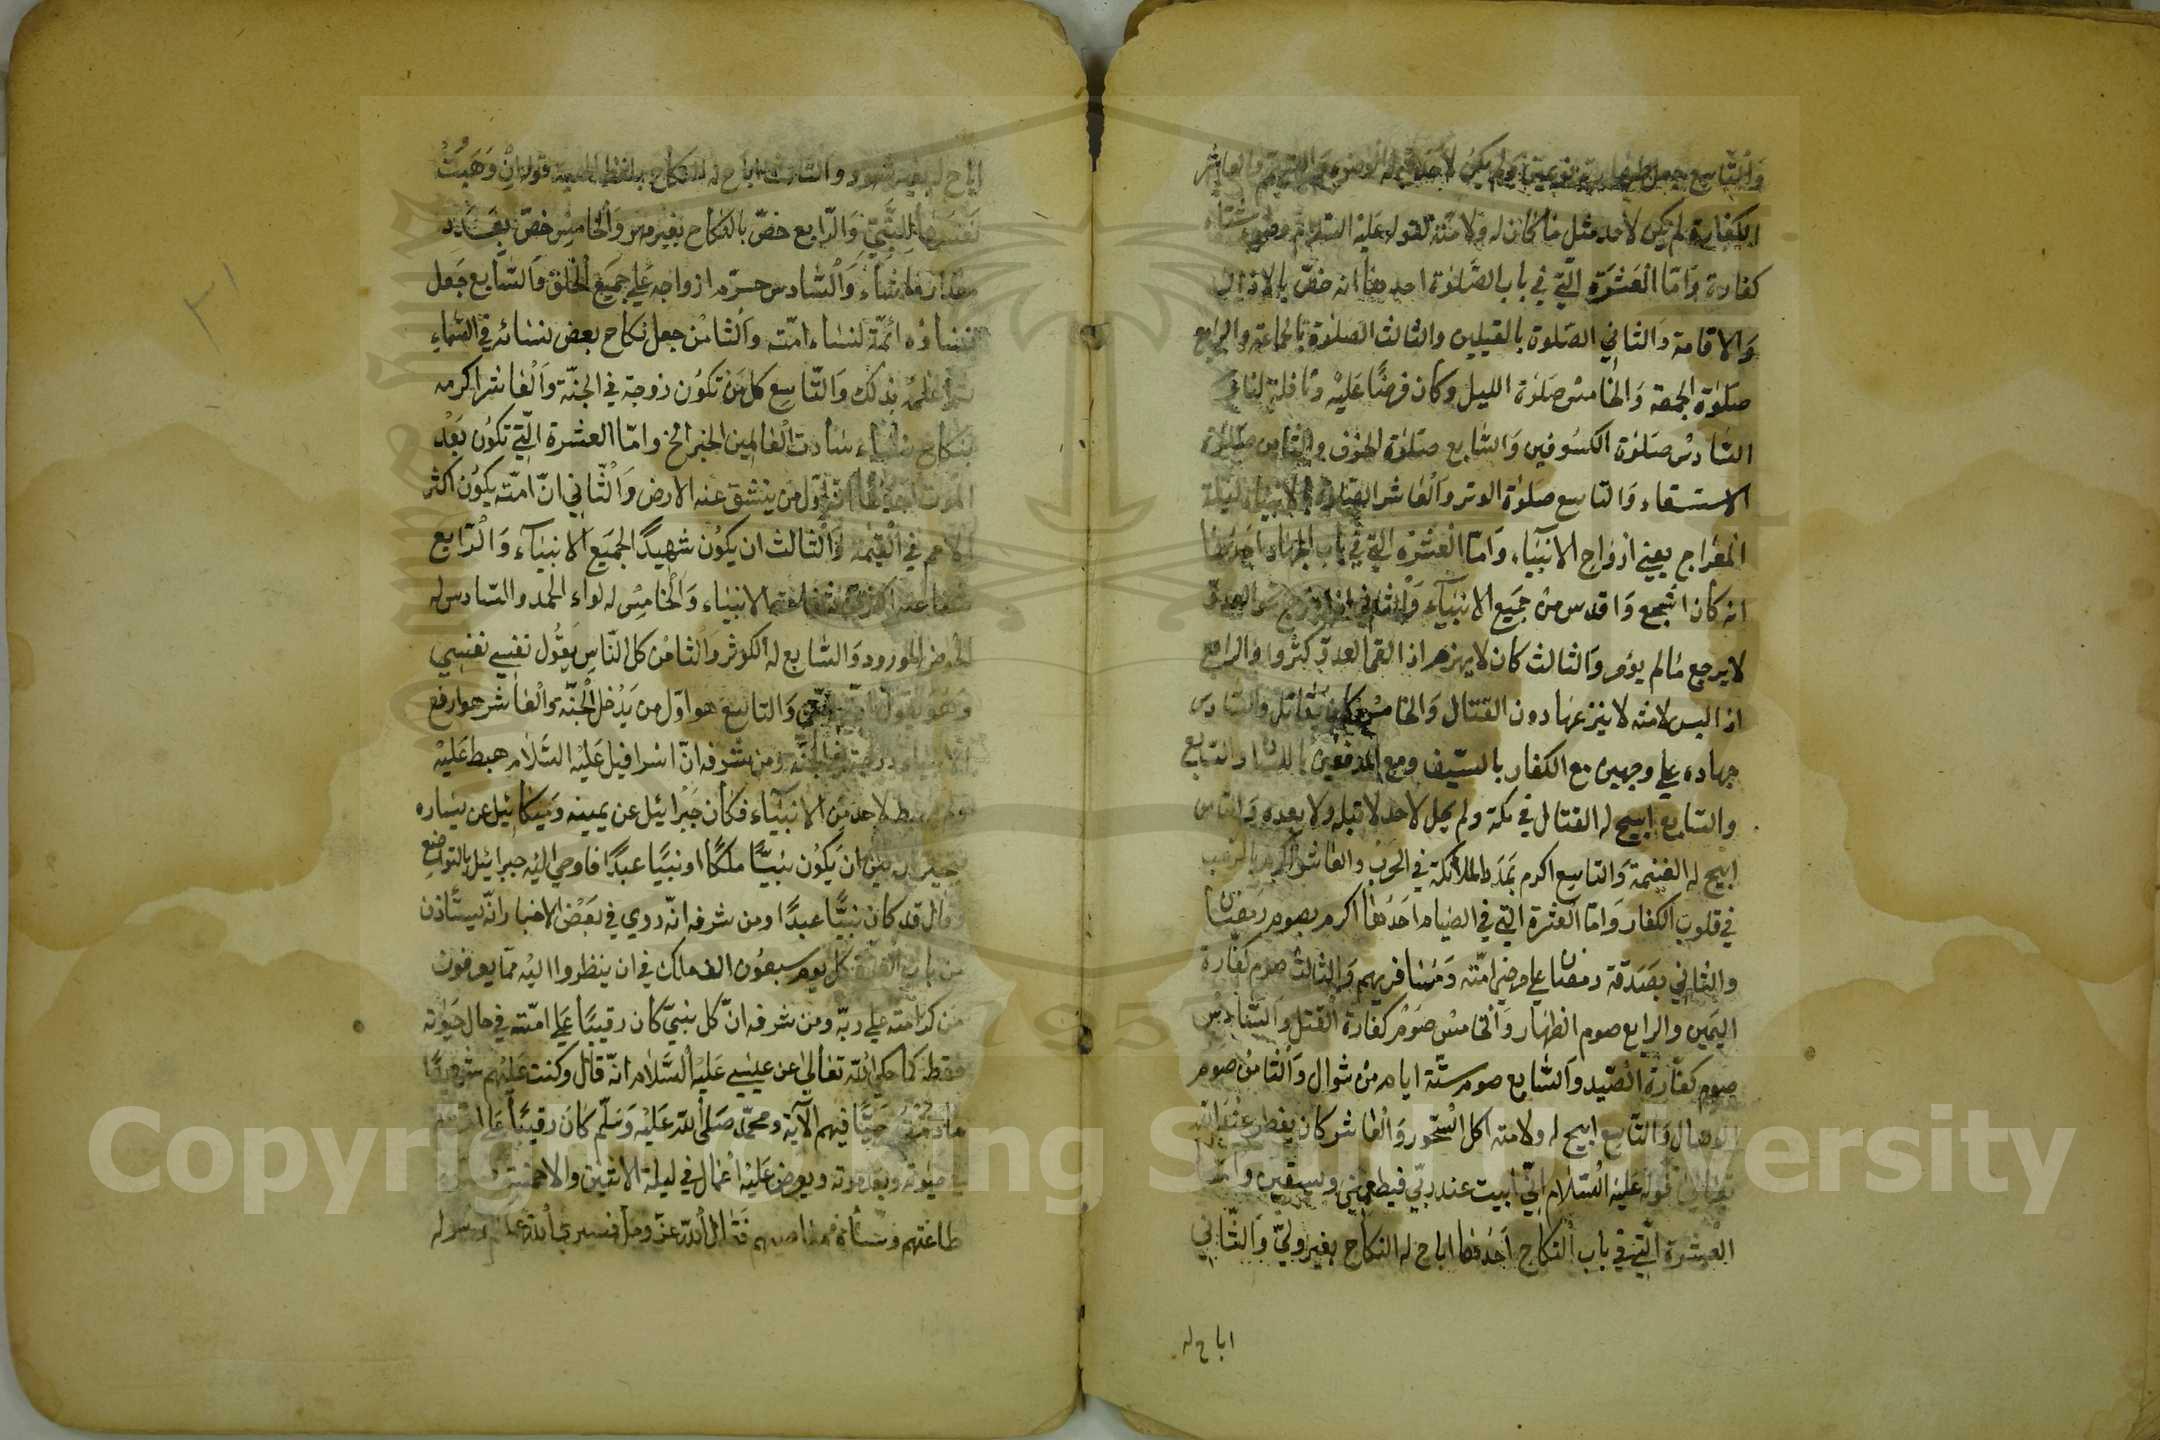 والتاسع جعل طهارته نوعين ولم يكن لاحد قبله الوضوء والتيمم والعاشر
الكفارة لم يكن لاحد مثل ما كان له ولامته لقوله عليه السلام
كفارة وَامّا العَشرَة الّتي في باب الصَّلوٰة احدهما انه خصّ بالاذان
وَالاقامة وَالثاني الصّلوة بالقبلتين والثالث الصّلوٰة بالجماعة والرابع
صَلوٰة الجمعة وَالخامسُ صَلوٰة الليل وكان فرضًا عَليْه ونافلة لنا و
السّادسُ صَلوٰة الكسُوفين وَالسّابع صَلوٰة الخوف والثامن صَلوٰة
الاستسقاء وَالتاسع صَلوٰة الوتر وَالعاشر الصّلوٰة بالانبياء ليلة
المعراج يعني ارواح الانبيَاء وَامّا العشرَة التي في باب الجهاد احَدهَا
انه كان اشجع وَاقدس من جميَع الانبيَآء وَالثاني اذا خرج الى العدوّ
لا يرجع مَا لم يؤمر وَالثالث كان لا يهزم اذا لقى العدوّ كثروا والرابع
اذا لبس لامته لا ينزعها دون القتال وَالخامسُ كان يقاتل والسّادس
جهاده على وجهين مع الكفار بالسّيف ومع المنافقين باللسان والتابع
والسّابع ابيح له القتال في مكة ولم يحل لاحد لا قبله ولا بعده وَالثامن
ابيح له الغنيمة وَالتاسع اكرم بمَدَد الملائكة في الحرَب والعاشر اكرم بالرعب
في قلوب الكفار وَامّا العشرة التي في الصّيام احَدهَا اكرم بصوم رمضَان
والثاني بصَدَقة رمضَان على مرضى امّته وَمُسَافريهم وَالثالث صوم كفّارة
اليَمين والرابع صوم الظهَار وَالخامسُ صَوْم كفارة القتل وَالسّادسُ
صوم كفّارة الصّيد والسّابع صوم ستّة ايام منُ شوال وَالثامنُ صوم
الوصال وَالتّاسع ابيح له ولامّته اكل السّحور وَالعَاشر كان يفطر عند الله
تعَالى قوله عَليْه السّلام انّي ابيت عند ربّي فيطعمني ويسقين وامّا
العشرة الّتي في باب النكاح احَدهَا اباح له النكاح بغير وليّ وَالثّاني
اباح له
اباح له بغير شهود والثالث اباح له النكاح بلفظ الهبة قوله انْ وَهَبَتْ
نَفْسَهَا لِلنَّبِيّ وَالرّابع خصّ بالنكاح بغير مهر وَالخامسُ خصّ بعَدَد
مقدار مَا شَاء وَالسّادس حرّم ازواجه عَلى جميَع الخلق وَالسّابع جَعل
نسَاؤه ائمّة لنسَاء امّته وَالثامنُ جعل نكاح بعض نسَائه في السّمَاءِ
ثم اعلم بذلك وَالتّاسع كل من تكوُن زوجة في الجنّة وَالعَاشر اكرمه
بنكاح نسَاء سَادت العَالمين الخبر الخ وامّا العشرة الّتي تكُون بعَْد
الموت احدهَا انّه اوّل من ينشق عنه الارض وَالثّاني انّ امّته يكون اكثر
الامم في القيمة وَالثالث ان يكوُن شهيدًا لجميَع الانبيَآء وَالرّابع
شفاعته اكثر من شفاعة الانبيَاء وَالخامِسُ له لواء الحمد والسّادس له
الحوض المورود وَالسّابع له الكوثر وَالثامنُ كل النّاسِ يَقُول نفسي نفسي
وَهو يقول امّتي امّتي وَالتاسع هو اوّل من يَدْخل الجَنّة وَالعَاشر هو ارفع
الانبياء درجة في الجنّة ومن شرفه انّ اسرافيل عَليْه السَّلام هبط عَليْه
ولم يهبط لاحد من الانبيَآء فكان جَبْرائيل عن يمينه وَميكَائيل عن يسَاره
فخيّر بين ان يَكوُن نبيًّا ملكًا او نبيَّا عبدًا فاوحى اليْه جبرائيل بالتواضع
وقال قد كان نبيًّا عبدًا ومن شرفه انّه روي في بَعْض الاخبار انّه يسْتأذن
من باب الجَنّة كل يوم سبعوُن الف ملك في ان ينظروا اليْه ممّا يعرفون
من كرامَته على ربّه ومن شرفه انّ كل نبيّ كان رقيبًا عَلى امّته في حال حَيٰوته
فقط كما حكى الله تعَالى عن عيسى عَليْه السَّلام انّه قال وكنت عَليْهم شهيدًا
مادمتُ حيًّا فيهم الآية ومحمّد صَلى الله عَليْه وَسَلّم كان رقيبًا عَلى امّته
في حيٰوته وبعد موته ويعرض عَليْه اعمَال في ليلة الاثنين والجمعة
طاعتهم وسَائر معَاصيهم قال الله عزّ وجلّ فسيرى الله عملكم ورسوله